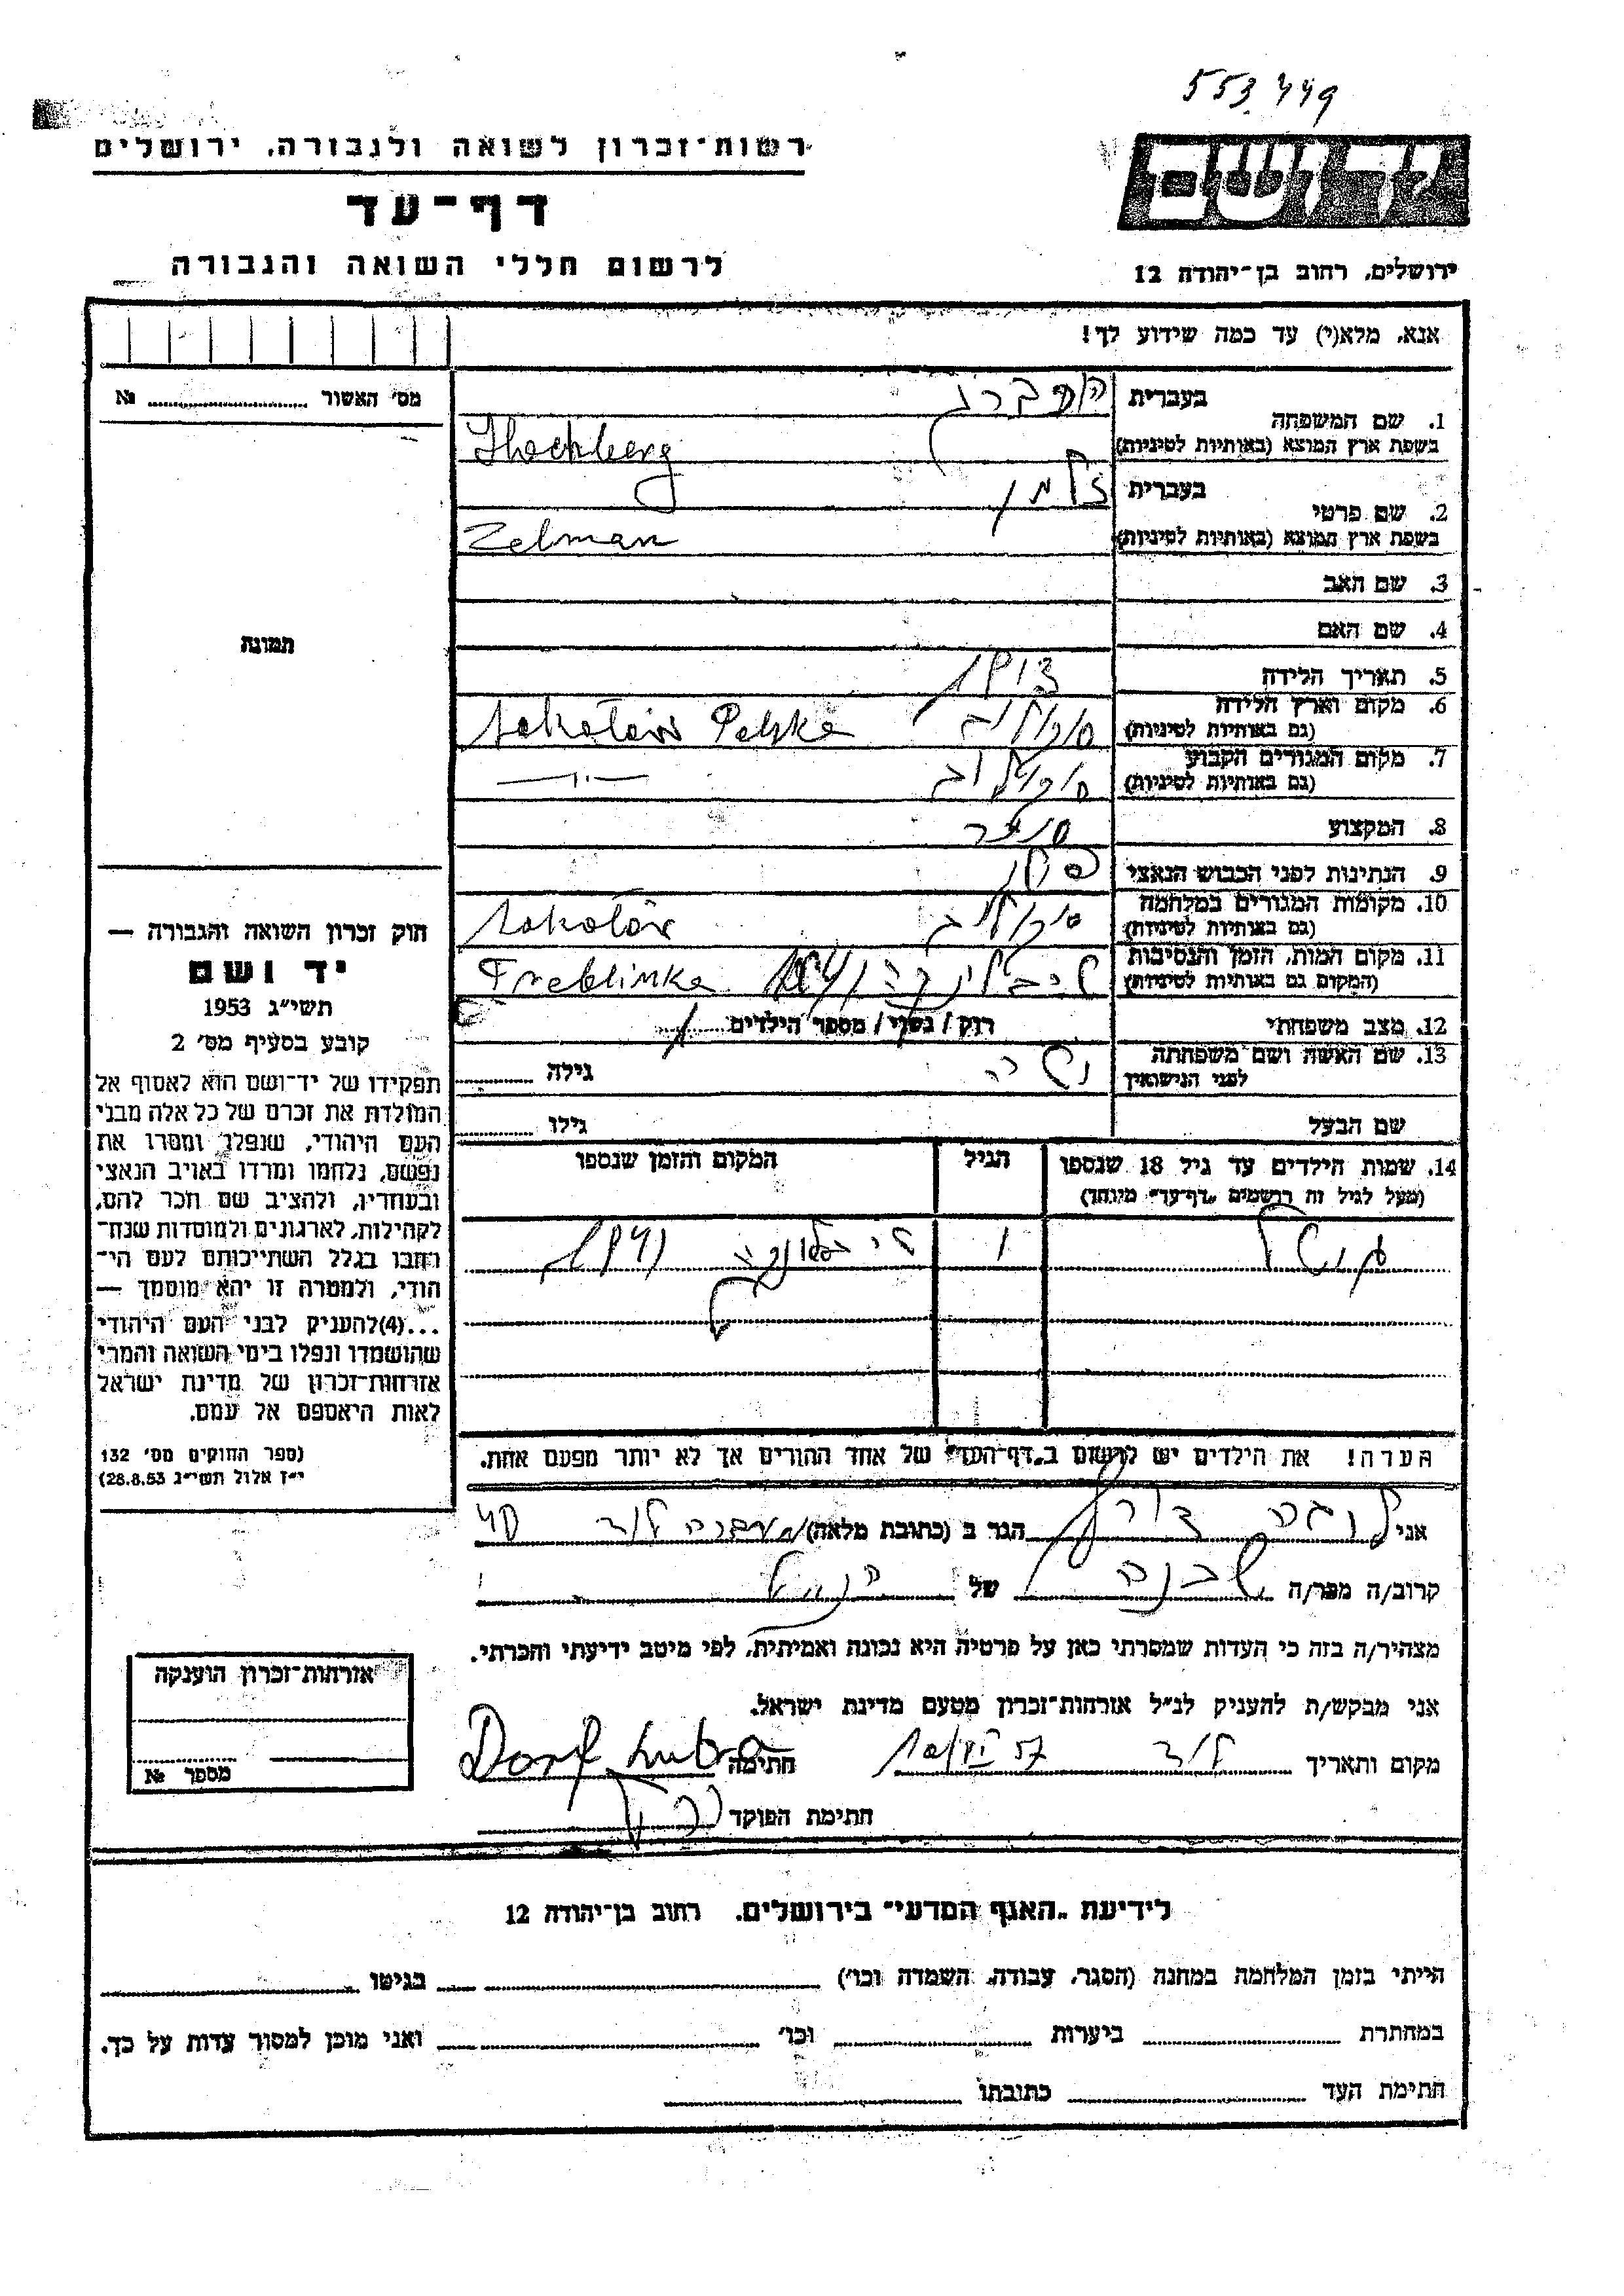 553449
רשות־זכרון לשואה ולגבורה, ירושלים
יד ושם
דף־עד
לרשום חללי השואה והגבורה
ירושלים, רחוב בן־יהודה 12
אנא, מלא(י) עד כמה שידוע לך!
מס' האשור № 
1. שם המשפחה
בעברית הוכברג
בשפת ארץ המוצא (באותיות לטיניות) Hochberg
2. שם פרטי
בעברית זלמן
בשפת ארץ המוצא (באותיות לטיניות) Zelman
3. שם האב
4. שם האם
תמונה
5. תאריך הלידה 1913
6. מקום וארץ הלידה
(גם באותיות לטיניות) סוקולוב Sokołów Polska
7. מקום המגורים הקבוע
(גם באותיות לטיניות) סוקולוב —"—
8. המקצוע סוחר
9. הנתינות לפני הכבוש הנאצי פולן
10. מקומות המגורים במלחמה
(גם באותיות לטיניות) סוקולוב Sokołów
11. מקום המות, הזמן והנסיבות
(המקום גם באותיות לטיניות) טרבלינקה 1941 Treblinka
12. מצב משפחתי רווק / נשוי / מספר הילדים 1
13. שם האשה ושם משפחתה
לפני הנישואין גילה
שם הבעל גילו
14. שמות הילדים עד גיל 18 שנספו
(מעל לגיל זה רושמים "דף־עד" מיוחד)
הגיל
המקום והזמן שנספו
1 טרבלינקה 1941
הערה! את הילדים יש לרשום ב"דף־העד" של אחד ההורים אך לא יותר מפעם אחת.
חוק זכרון השואה והגבורה —
יד ושם
תשי"ג 1953
קובע בסעיף מס' 2
תפקידו של יד־ושם הוא לאסוף אל
המולדת את זכרם של כל אלה מבני
העם היהודי, שנפלו ומסרו את
נפשם, נלחמו ומרדו באויב הנאצי
ובעוזריו, ולהציב שם וזכר להם,
לקהילות, לארגונים ולמוסדות שנח־
רבו בגלל השתייכותם לעם הי־
הודי, ולמטרה זו יהא מוסמך —
...(4)להעניק לבני העם היהודי
שהושמדו ונפלו בימי השואה והמרי
אזרחות־זכרון של מדינת ישראל
לאות היאספם אל עמם.
(ספר החוקים מס' 132
י"ז אלול תשי"ג 28.8.53)
אני לובה דורף הגר ב (כתובת מלאה) מעברה לוד
קרוב/ה מכר/ה שכנה של הנ"ל
מצהיר/ה בזה כי העדות שמסרתי כאן על פרטיה היא נכונה ואמיתית, לפי מיטב ידיעתי והכרתי.
אני מבקש/ת להעניק לנ"ל אזרחות־זכרון מטעם מדינת ישראל.
מקום ותאריך לוד חתימה Dorf Luba
חתימת הפוקד
אזרחות־זכרון הוענקה
מספר №
לידיעת "האגף המדעי" בירושלים, רחוב בן־יהודה 12
הייתי בזמן המלחמה במחנה (הסגר, עבודה, השמדה וכו') בגיטו
במחתרת ביערות וכו' ואני מוכן למסור עדות על כך.
חתימת העד כתובתו